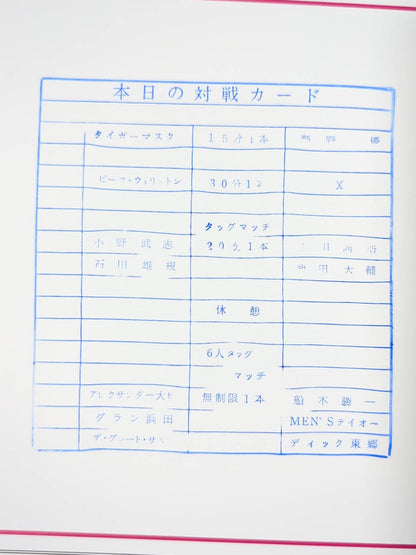 本日の対戦カード
タイガーマスク 15分1本 優
ビーフ・ウェリントン 30分1 X
タッグマッチ
小野武志 20分1本
石川雄規 大輔
休憩
6人タッグ
マッチ
アレクサンダー大 無制限1本 船木勝一
グラン浜田 MEN'Sテイオー
ザ・グレート・サ ディック東郷